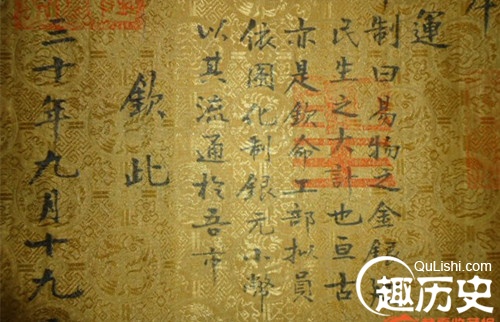 運
制曰易物之金銀
民生之大計也亘古
亦是欽命工部拟員
依圖化制銀元小幣
以其流通於吾市
欽此
三十年九月十九
QuLishi.com
趣历史